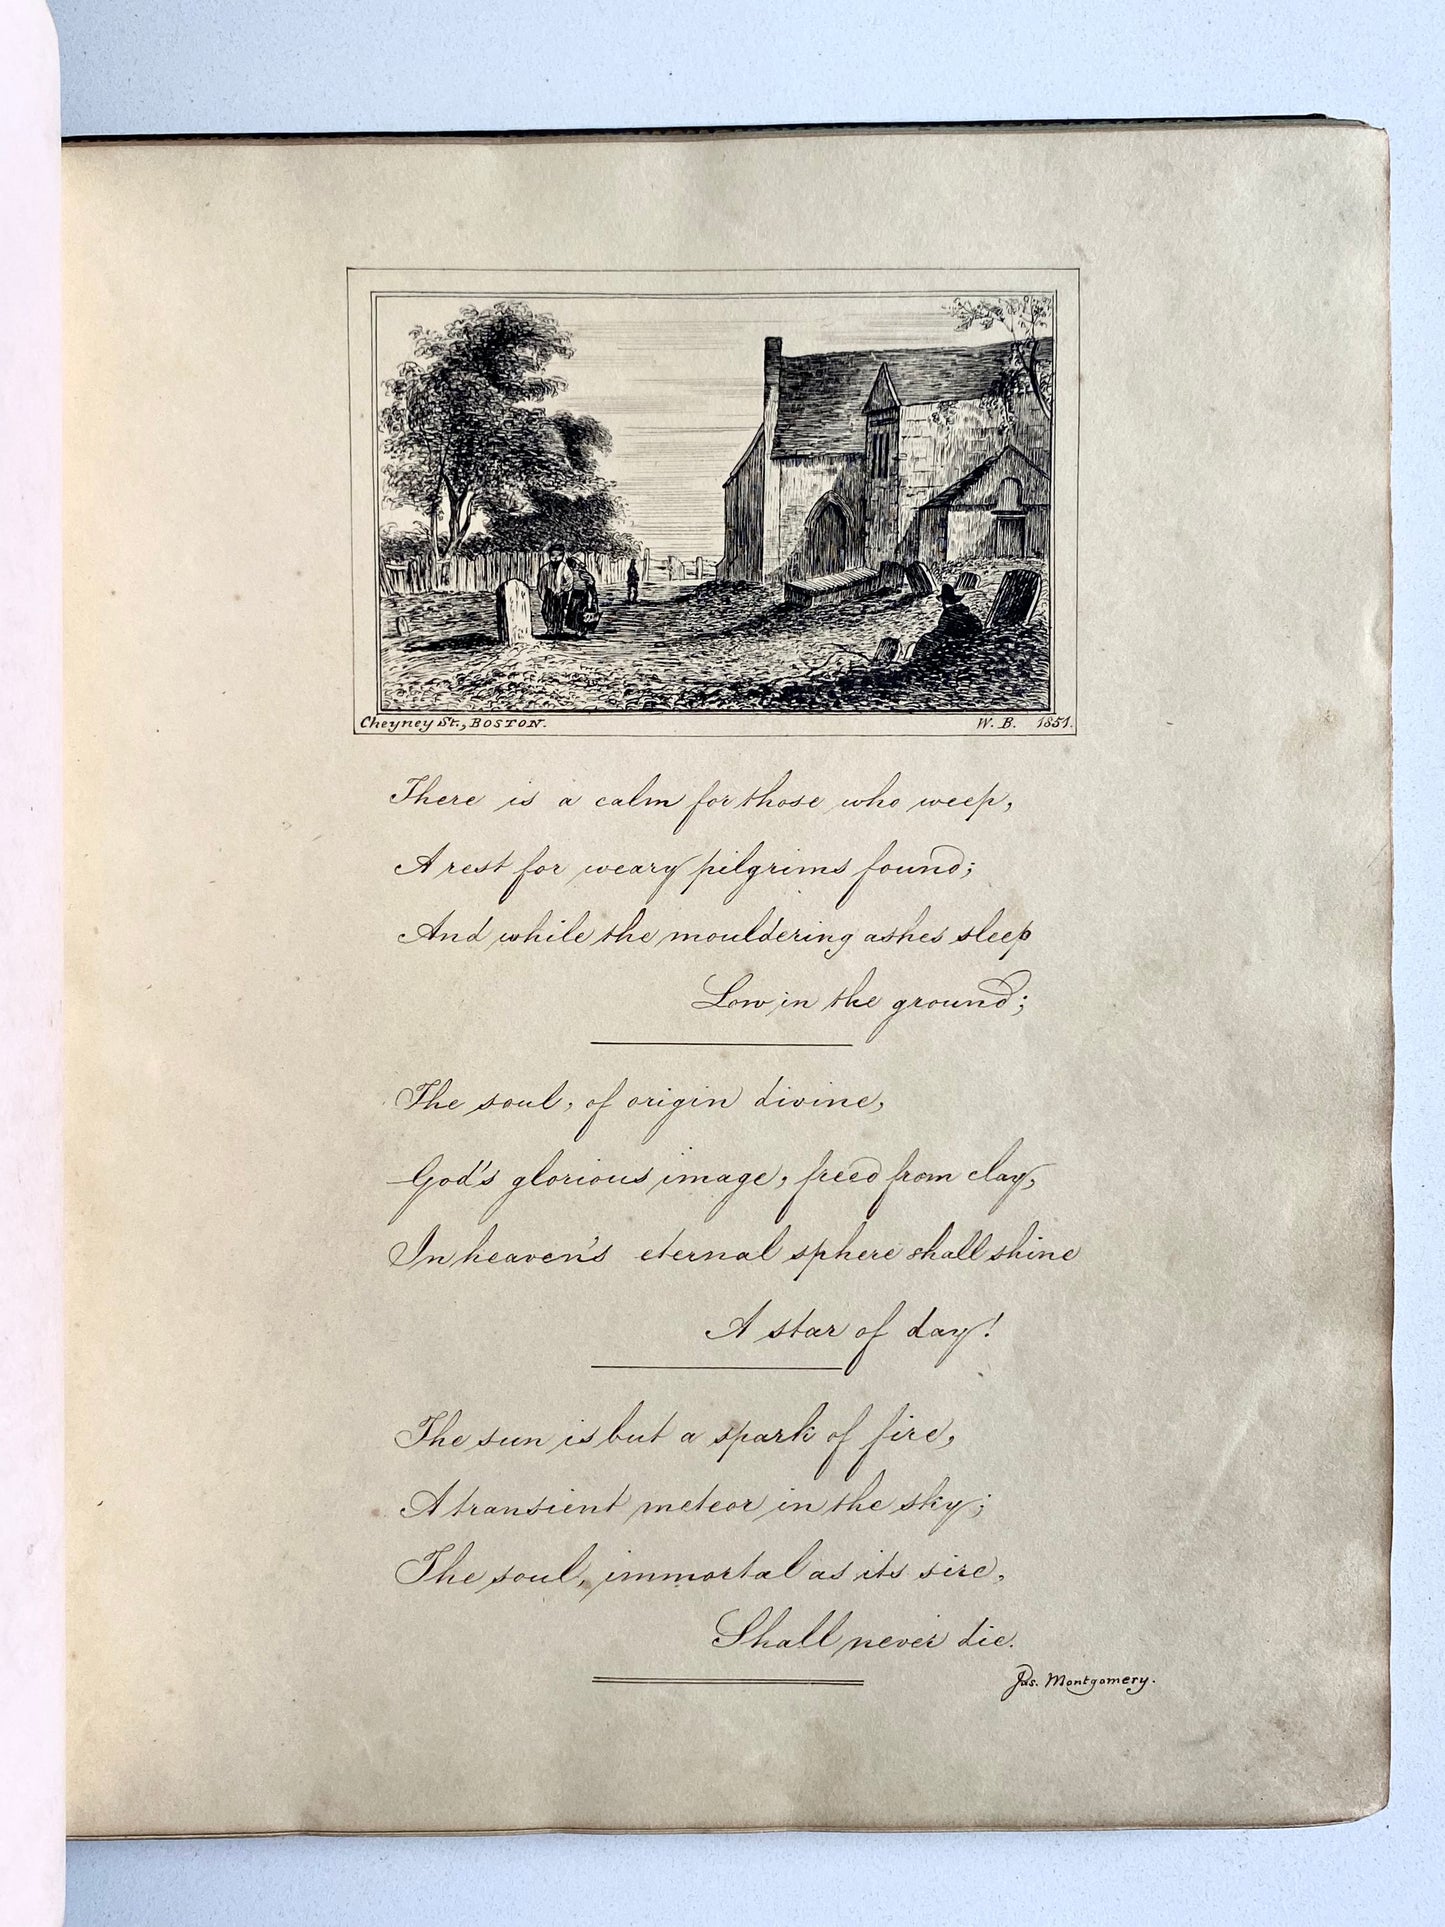 Cheyney St., BOSTON.
W. B. 1851.
There is a calm for those who weep,
A rest for weary pilgrims found;
And while the mouldering ashes sleep
Low in the ground;
The soul, of origin divine,
God's glorious image, freed from clay,
In heaven's eternal sphere shall shine
A star of day!
The sun is but a spark of fire,
A transient meteor in the sky;
The soul, immortal as its sire,
Shall never die.
Jas. Montgomery.